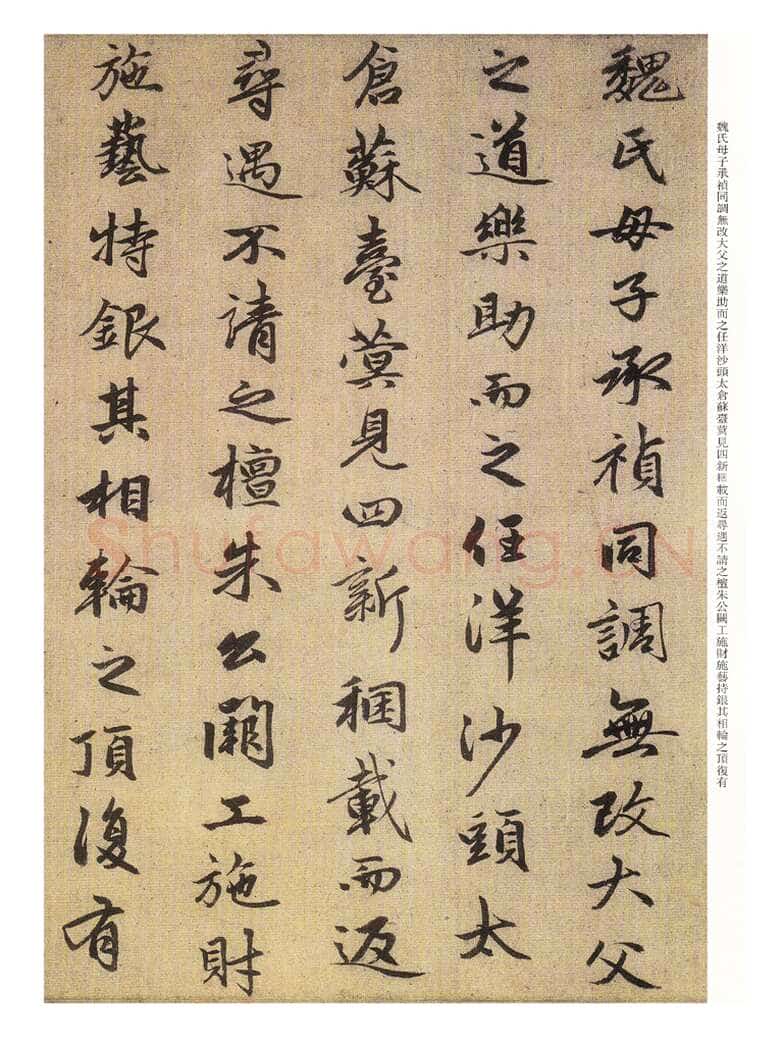 魏氏母子承禎同調無改大父
之道樂助而之任洋沙頭太
倉蘇臺蓂見四新稛載而返
尋遇不請之檀朱公闕工施財
施藝特銀其相輪之頂復有
魏氏母子承禎同調無改大父之道樂助而之任洋沙頭太倉蘇臺蓂見四新稛載而返尋遇不請之檀朱公闕工施財施藝持銀其相輪之頂復有
Shufawang.CN